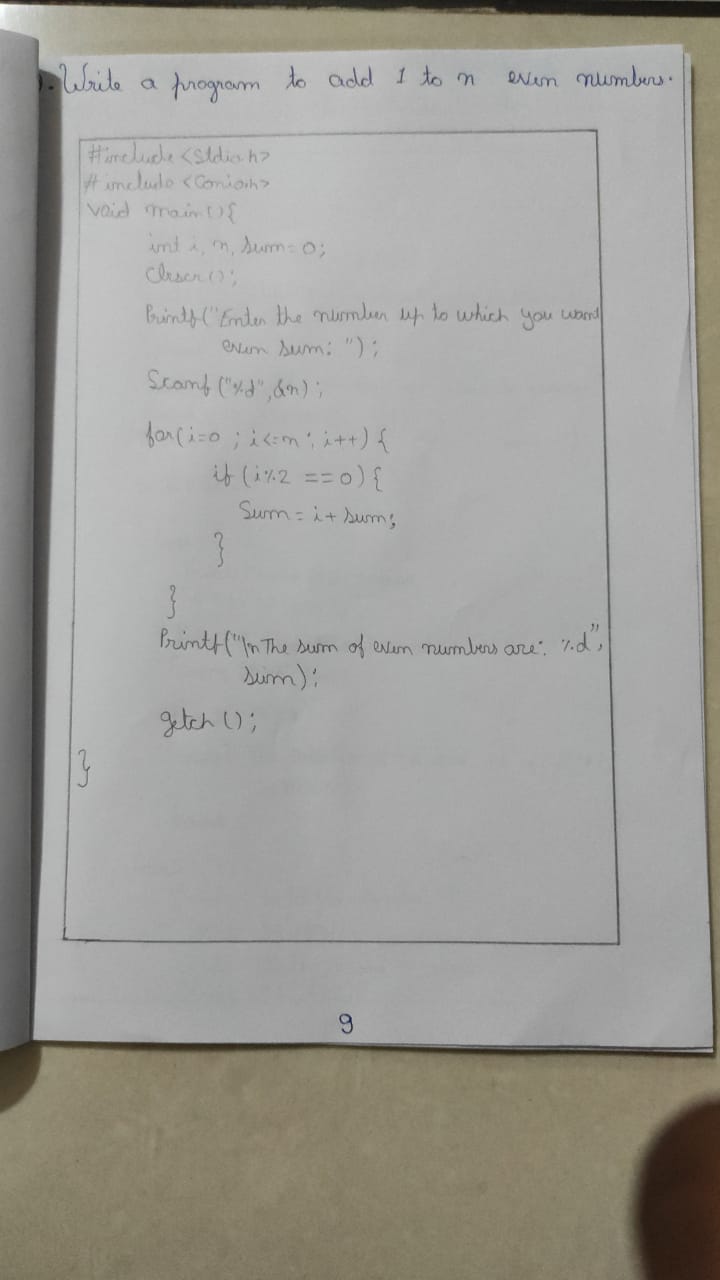 . Write a program to add 1 to n even numbers.
#include <stdio.h>
#include <conio.h>
void main(){
int i, n, sum=0;
clrscr();
Printf("Enter the number up to which you want
even sum: ");
Scanf("%d",&n);
for(i=0 ; i<=n; i++) {
if (i%2 == 0) {
Sum = i + sum;
}
}
Printf("\n The sum of even numbers are: %d",
sum);
getch ();
}
9